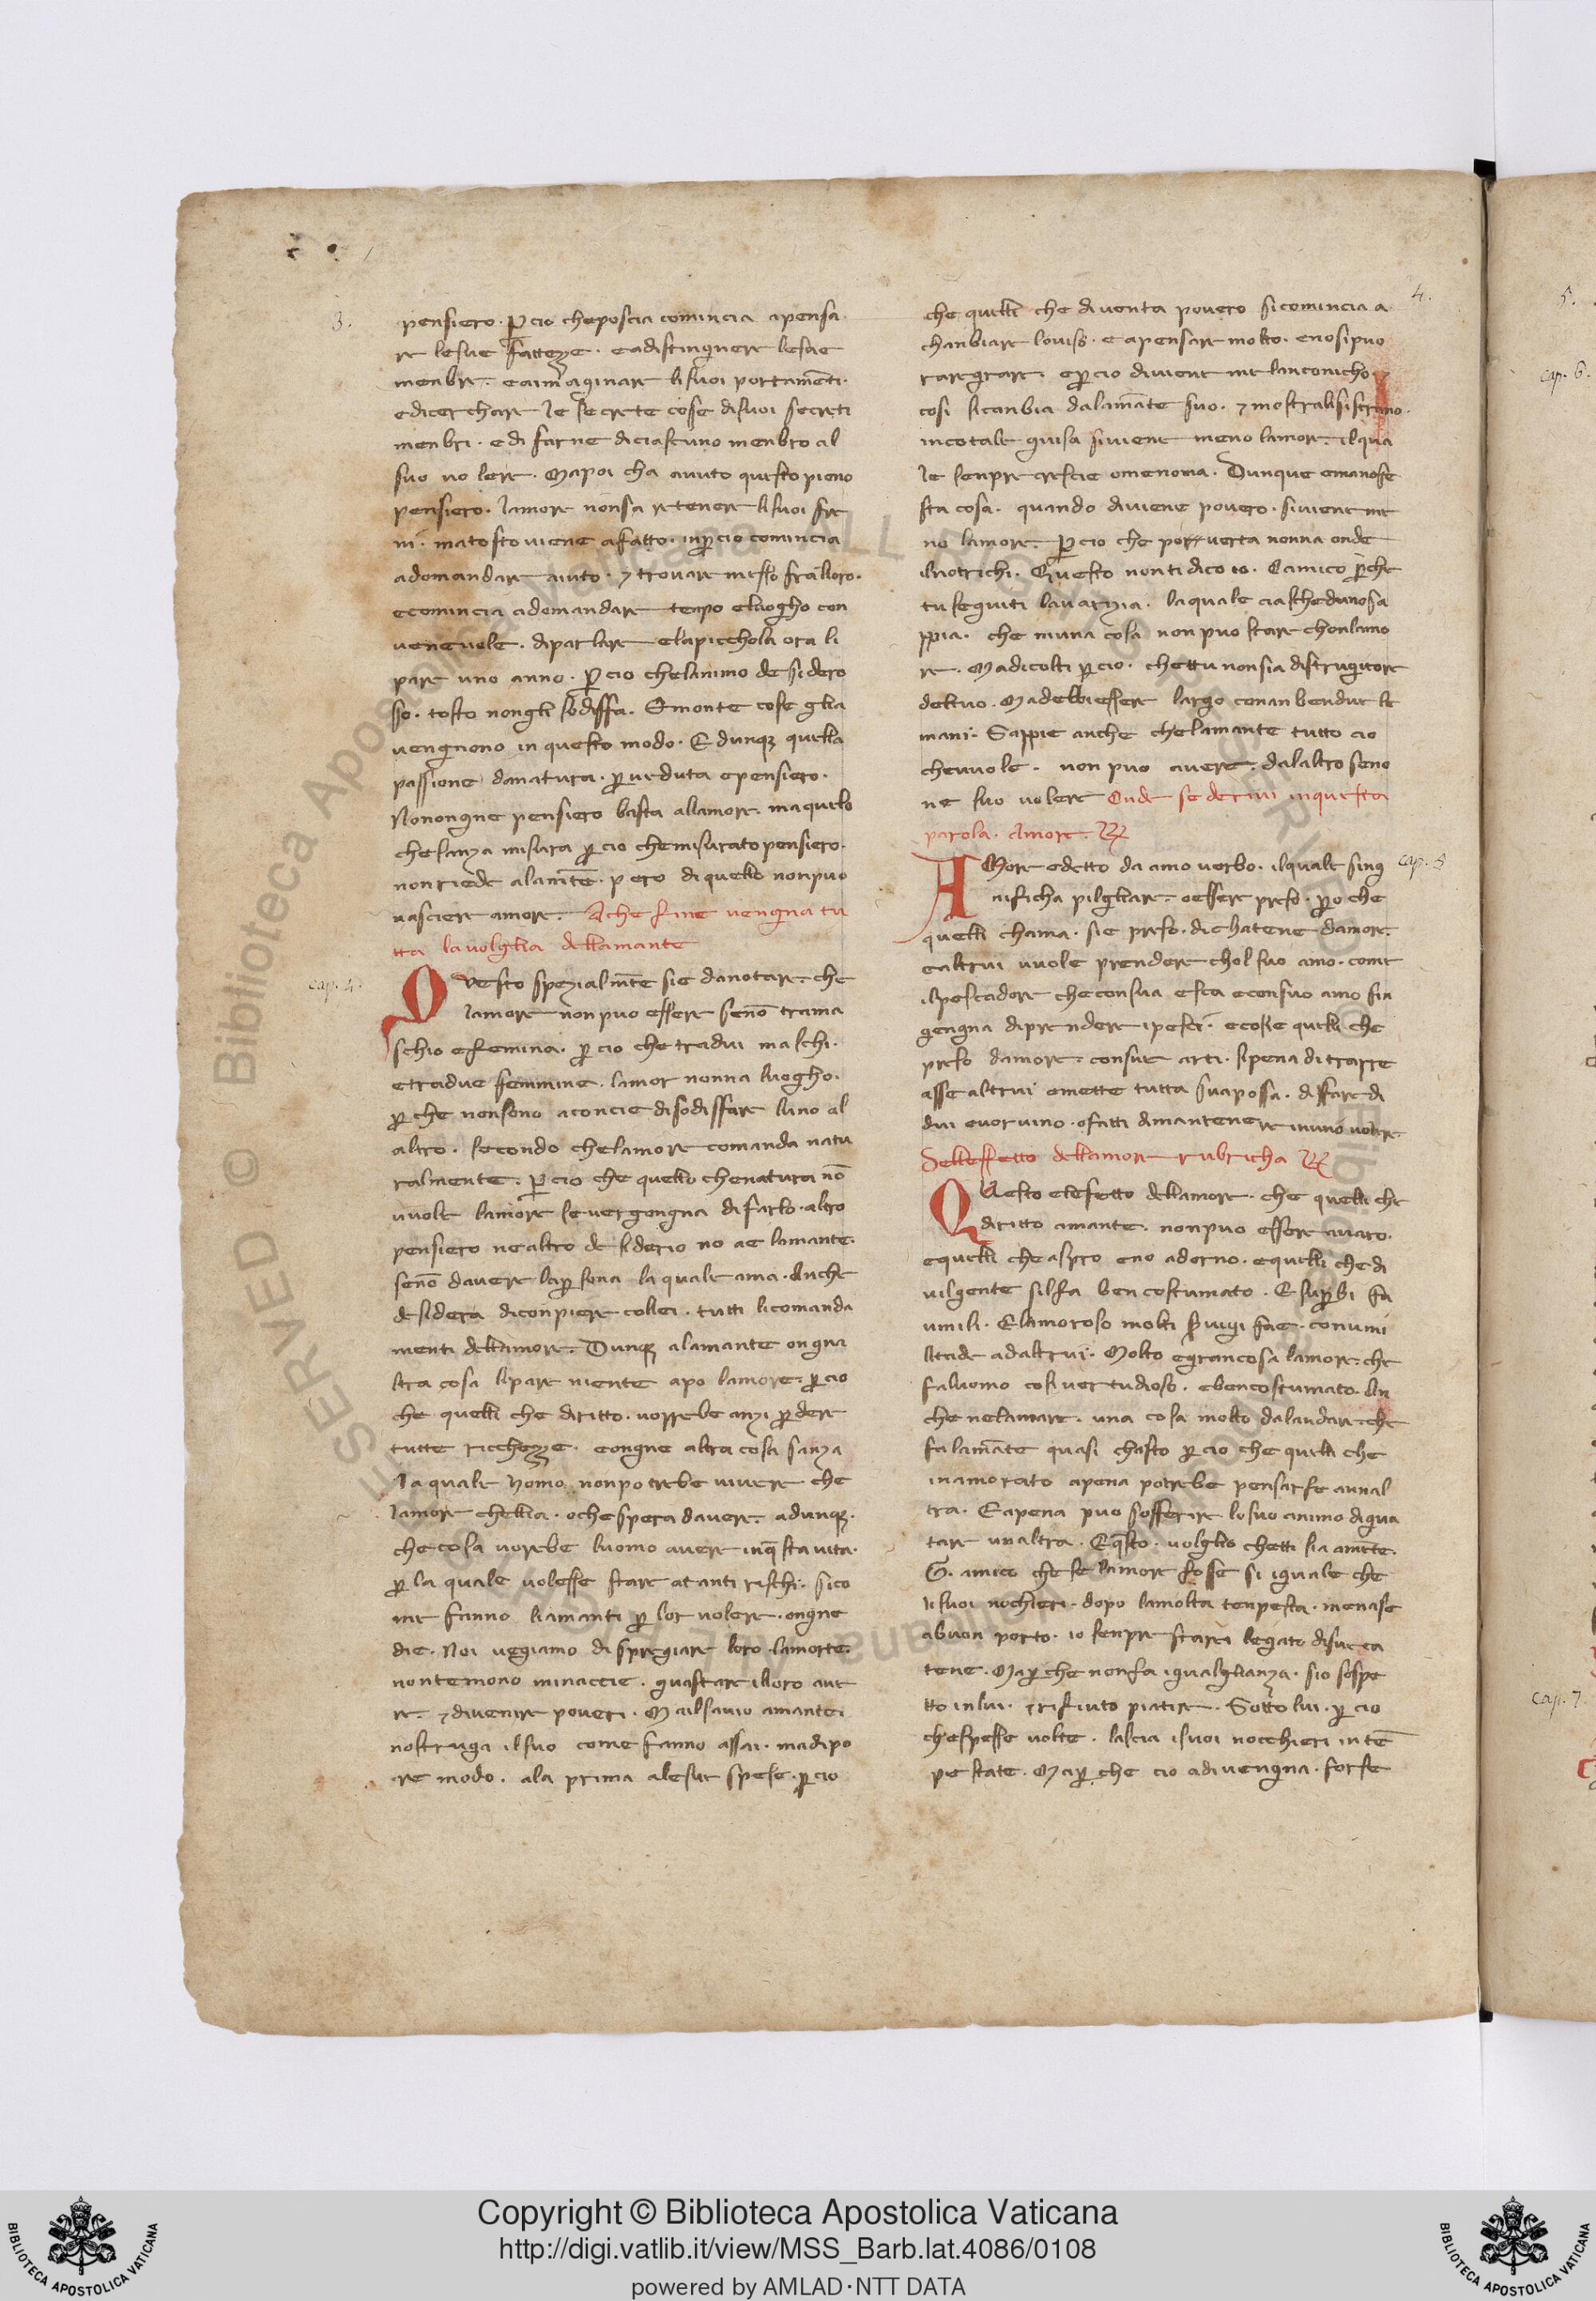 3.
pensiero. ꝑcio cheposcia comincia apensa
re lesue fatteçe. eadistinguere lesue
menbra. eaim̄aginar lisuoi portam̄enti.
edicerchare le secrete cose disuoi secreti
menbri. edi farne diciascuno menbro al
suo uo lere. Mapoi cha auuto questo pieno
pensiero. lamore nonsa retenere lisuoi fre
ni. matosto uiene afatto. inꝑcio comincia
adomandare aiuto. ⁊ trouare messo fralloro.
ecomincia adomandare tenpo eluogho con
ueneuole. diparlare elapicchola ora li
pare uno anno. ꝑcio chelanimo desidero
sso. tosto nongli sodisffa. Emonte cose glia
uengnono in questo modo. E dunqꝫ quella
passione danatura. ꝑ ueduta epensiero.
Nonongne pensiero basta allamore. maquelo
chesança misura ꝑcio chemisurato pensiero.
nonriede alamēte. pero di quello nonpuo
nasciere amore. Ache fine uengna tu
tta lauolglia dellamante
cap. 4.
Questo speçialmēte sie danotare. che
lamore nonpuo essere senō trama
schio efemina. ꝑcio che tradui maschi.
etradue femmine. lamor nonna luogho.
ꝑche nonsono aconcie disodisffare luno al
altro. secondo chelamore comanda natu
ralmente. ꝑcio che quello chenatura nō
uuole lamore seuergongna difarlo. altro
pensiero nealtro desiderio no ae lamante.
senō dauere laꝑsona laquale ama. Anche
desidera diconpiere collei. tutti licomanda
menti dellamore. Dunqꝫ alamante ongna
ltra cosa lipare niente apo lamore. ꝑcio
che quelli che diritto. uorrebe ançi ꝑdere
tutte riccheçe. eongne altra cosa sança
laquale homo nonpotrebe uiuere che
lamore chellia. oche spera dauere. adunqꝫ.
checosa uorebe luomo auere inq̄sta uita.
ꝑ la quale uolesse stare atanti rischi. sico
me fanno liamanti ꝑ lor uolere. ongne
die. Noi ueggiamo dispregiare loro lamorte.
nontemono minaccie. guastare illoro aue
re. ⁊ diuenire poueri. Mailsauio amante
nostruga ilsuo come fanno assai. madipo
re modo. ala prima alesue spese. ꝑcio
4.
che quelli che diuenta pouero sicomincia a
chanbiare louiso. eapensare molto. enosipuo
raregrare. eꝑcio diuiene melanconicho ⁊
cosi sicanbia dalamāte suo. ⁊ mostralisistrano.
incotale guisa siuiene meno lamore. ilqua
le senpre crescie omenoma. Dunque emanofe
sta cosa. quando diuiene pouero. siuiene me
no lamore. ꝑcio che pouerta nonna onde
ilnotrichi. Questo nonti dico io. Oamico ꝑche
tu seguiti lauariçia. laquale ciaschedunosa
ppia. che niuna cosa non puo stare chonlamo
re. Madicolti ꝑcio. chettu nonsia distrugitore
deltuo. Madebbi essere largo conanbendue le
mani. Sappie anche chelamante tutto cio
cheuuole. non puo auere. dalaltro seno
ne suo uolere Onde se deriui inquesta
parola. Amore. R
cap. 5
AMore edetto da amo uerbo. ilquale sing
nificha pilgliare. oessere preso. ꝑo che
quelli chama. sie preso. dichatene damore.
ealtrui uuole prendere chol suo amo. come
ilpescadore checonsua esca econsuo amo sin
gengna diprendere ipesci. ecosie quelli che
preso damore. consue arti. sipena ditrarre
asse altrui emette tutta suapossa. disfare di
dui cuor uno. ofatti amantenere inuno uolere.
Delleffetto dellamore rubricha R
Questo elefetto dellamore. che quelli che
diritto amante. nonpuo essere auaro.
equelli che aspro eno adorno. equelli chedi
uilgente silfa ben costumato. Esuꝑbi fa
umili. Elamoroso molti seruigi fae. conumi
litade adaltrui. Molto egrancosa lamore. che
faluomo cosi uertudioso. ebencostumato. An
che nelamare. una cosa molto dalaudare. che
falamāte quasi chasto ꝑcio che quelli che
inamorato apena potrebe pensarse aunal
tra. Eapena puo sofferire losuo animo digua
tare unaltra. Eq̄sto. uolglio chetti sia amēte.
G. amico che se lamore fosse si iguale che
lisuoi nochieri. dopo lamolta tenpesta. menase
abuon porto. io senpre starei legato disueca
tene. Maꝑche nonfa igualglianza. sio sospe
tto inlui. ⁊ rifiuto piatire. Sotto lui. ꝑcio
chespesse uolte. lascia isuoi nocchieri in tē
pestate. Maꝑ che cio adiuengna. forse
5.
cap. 6.
cap. 7
Copyright © Biblioteca Apostolica Vaticana
http://digi.vatlib.it/view/MSS_Barb.lat.4086/0108
powered by AMLAD·NTT DATA
BIBLIOTECA APOSTOLICA VATICANA
BIBLIOTECA APOSTOLICA VATICANA